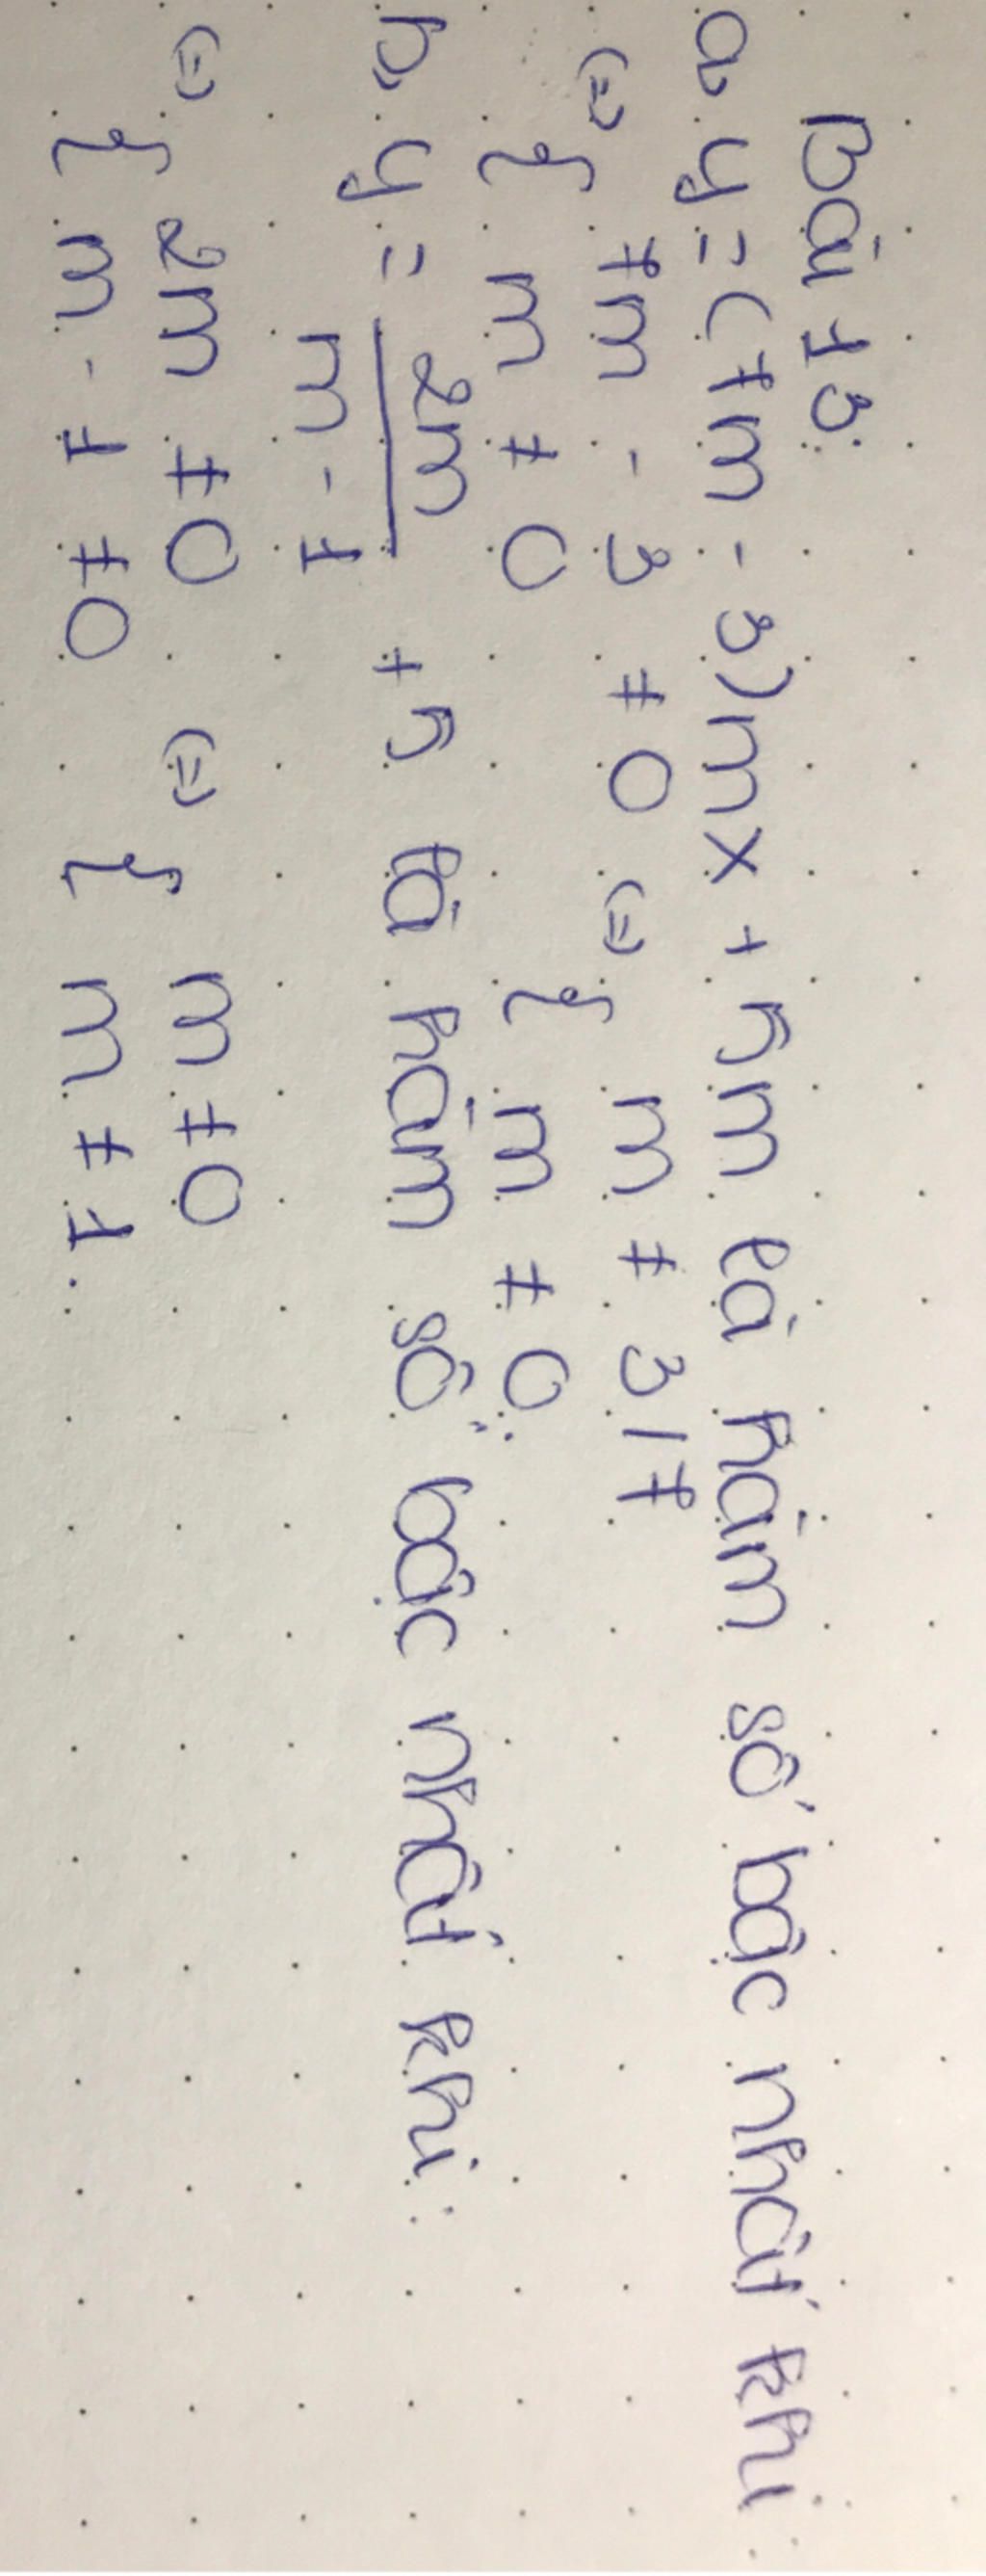 Bài 13:
a, y = (7m - 3)mx + 5m là hàm số bậc nhất khi:
(=) { 7m - 3 ≠ 0 (=) { m ≠ 3/7
m ≠ 0 m ≠ 0.
b, y = 2m/m - 1 + 5 là hàm số bậc nhất khi:
(=) { 2m ≠ 0 (=) { m ≠ 0
m - 1 ≠ 0 m ≠ 1.